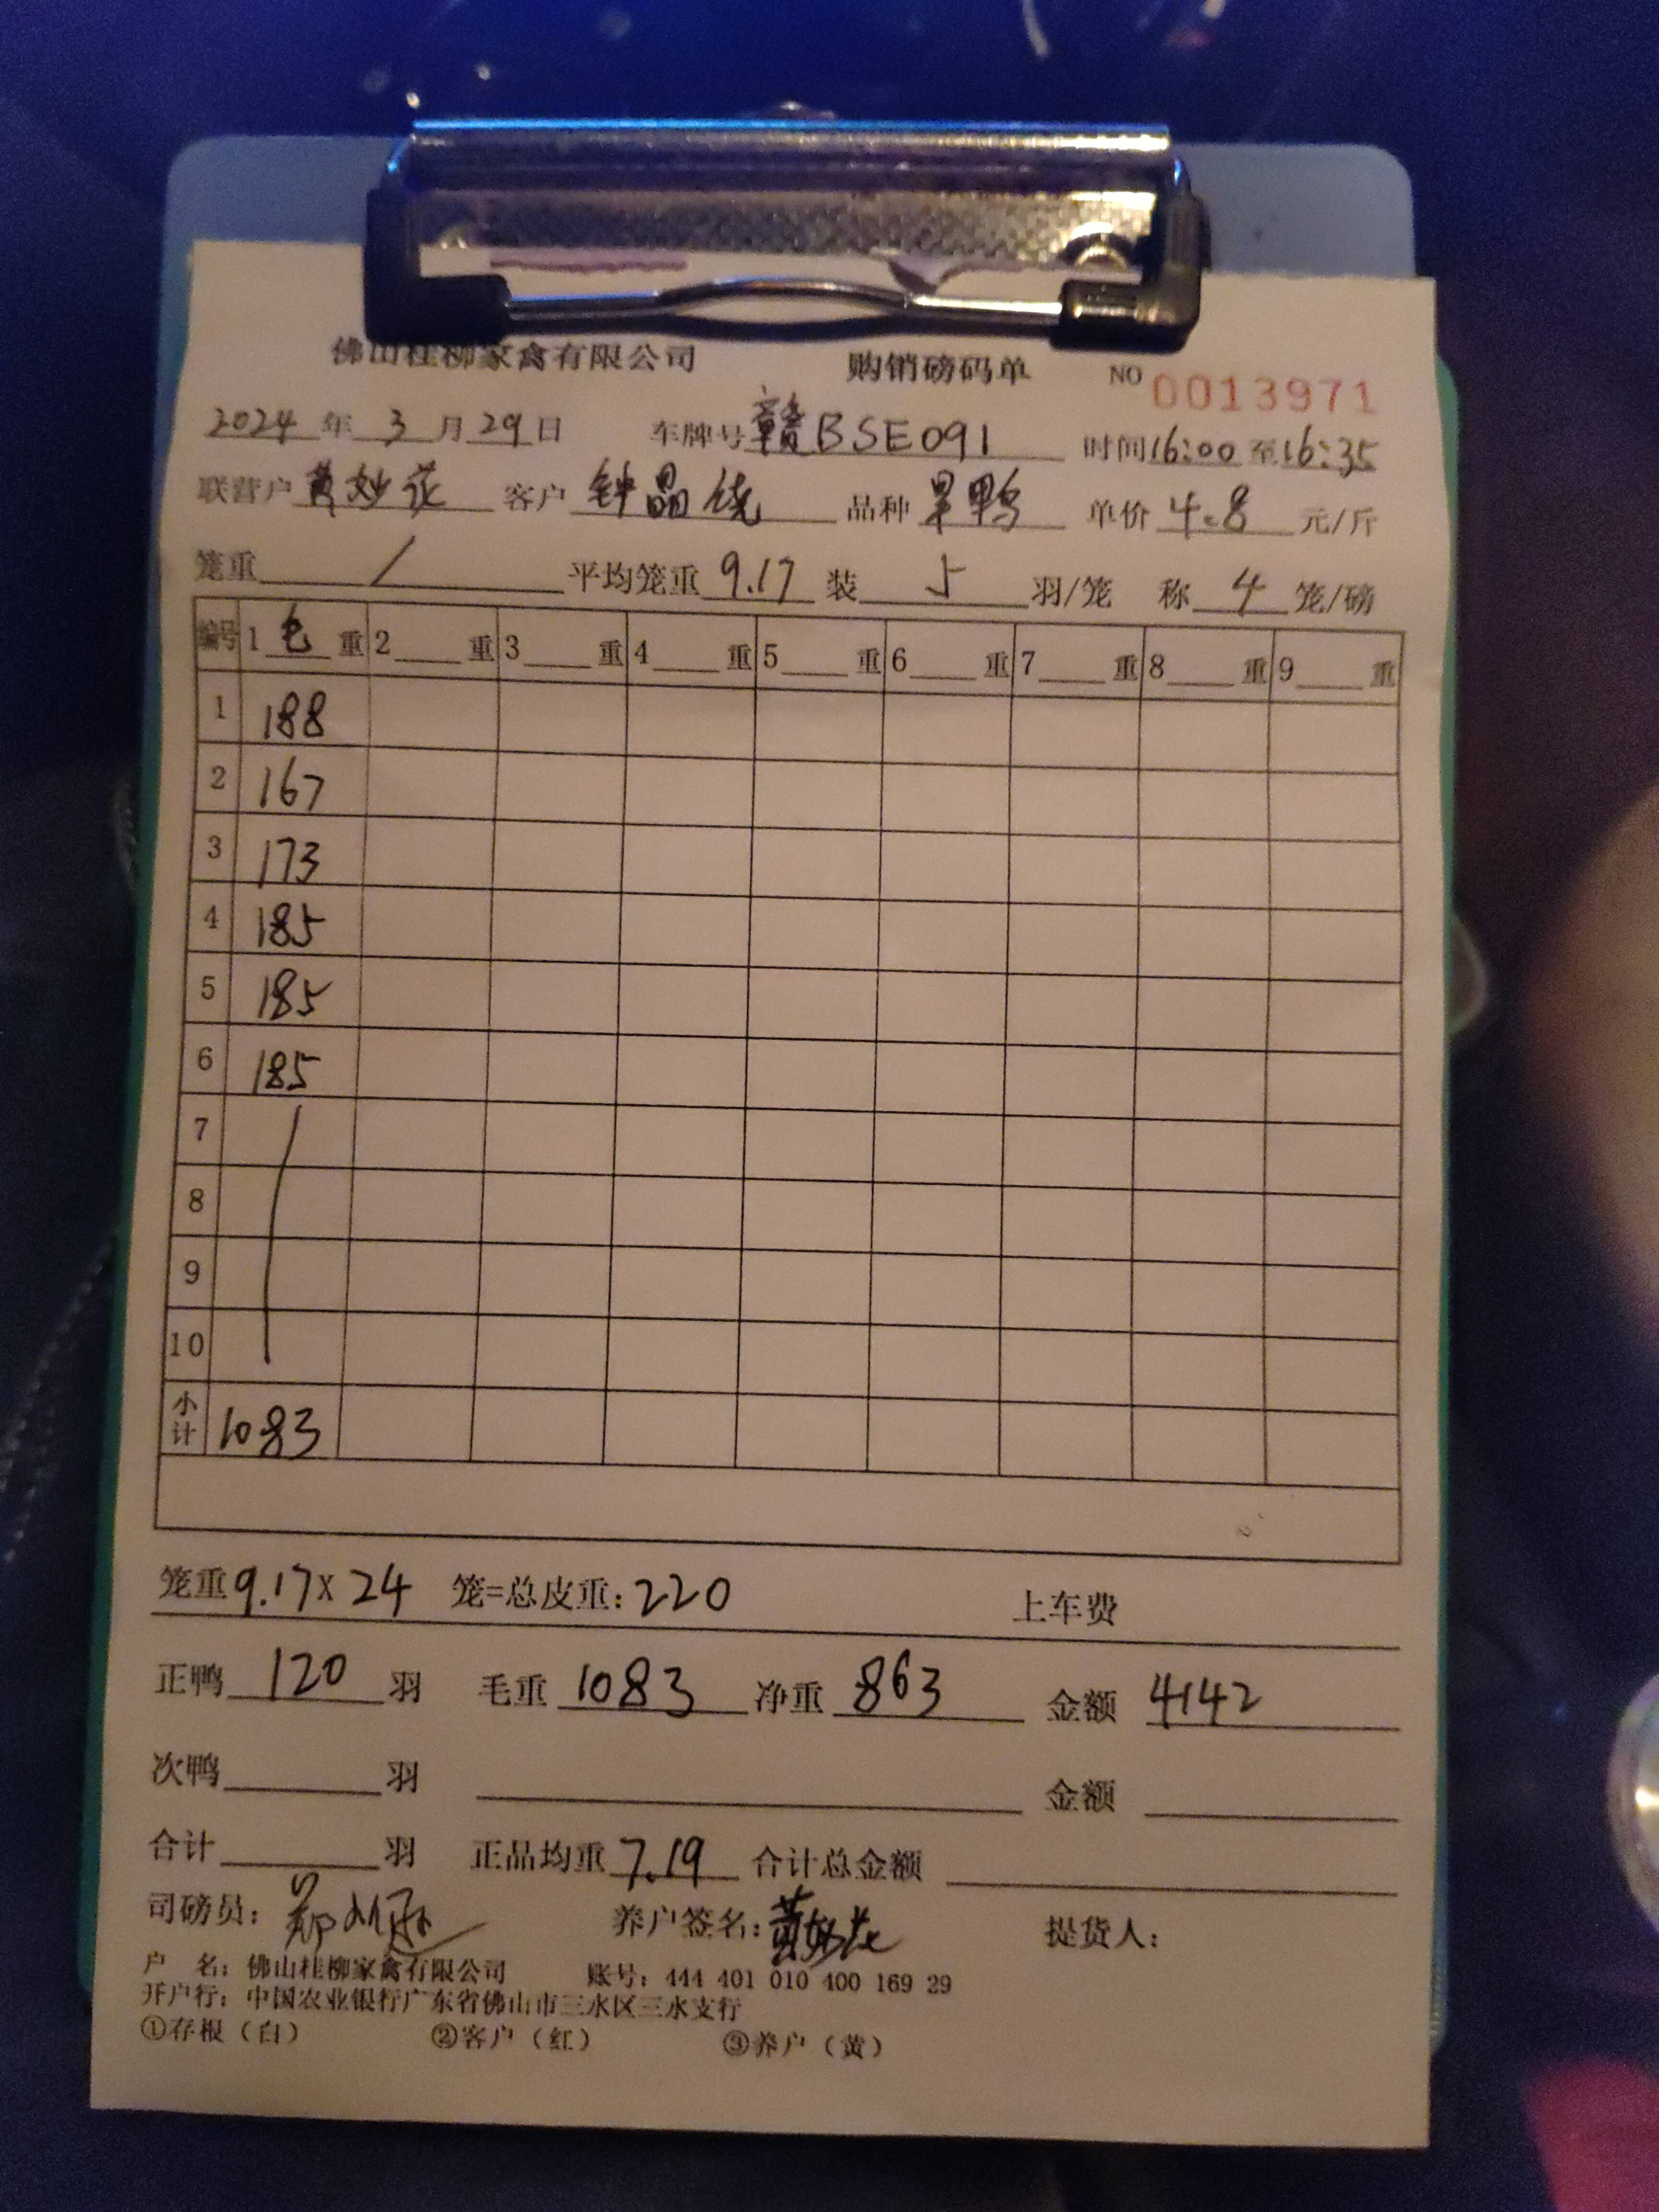 佛山桂柳家禽有限公司 购销磅码单 NO 0013971
2024 年 3 月 29 日 车牌号 赣BSE091 时间 16:00 至 16:35
联营户 黄妙花 客户 钟晶饶 品种 旱鸭 单价 4.8 元/斤
笼重 / 平均笼重 9.17 装 5 羽/笼 称 4 笼/磅
编号 1 毛 重 2 重 3 重 4 重 5 重 6 重 7 重 8 重 9 重
1 188
2 167
3 173
4 185
5 185
6 185
7
8
9
10
小计 1083
笼重 9.17 x 24 笼=总皮重: 220 上车费
正鸭 120 羽 毛重 1083 净重 863 金额 4142
次鸭 羽 金额
合计 羽 正品均重 7.19 合计总金额
司磅员: 养户签名: 黄妙花 提货人:
户 名: 佛山桂柳家禽有限公司 账号: 444 401 010 400 169 29
开户行: 中国农业银行广东省佛山市三水区三水支行
①存根（白） ②客户（红） ③养户（黄）